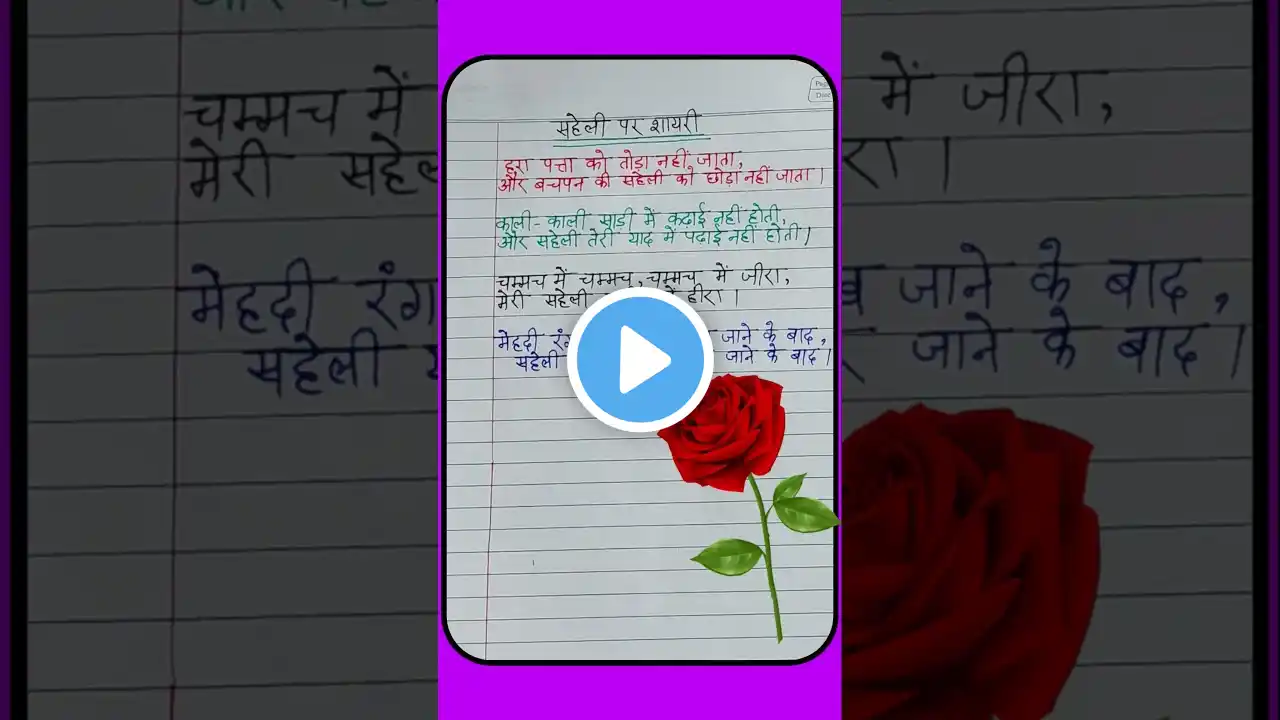 सहेली पर शायरी
हरा पत्ता को तोड़ा नहीं जाता,
और बचपन की सहेली को छोड़ा नहीं जाता।
काली-काली साड़ी में कढ़ाई नहीं होती,
और सहेली तेरी याद में पढ़ाई नहीं होती।
चम्मच में चम्मच, चम्मच में जीरा,
मेरी सहेली हीरा।
मेहदी रंग जाने के बाद,
सहेली जाने के बाद।